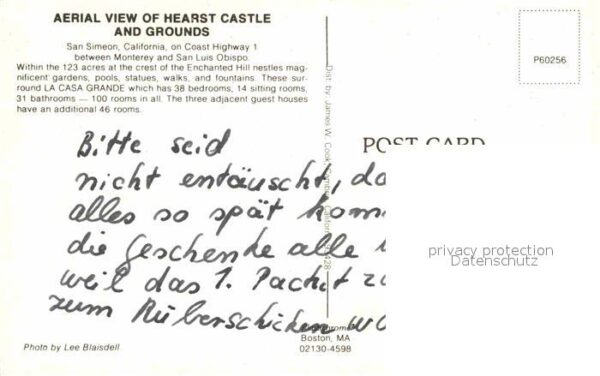 AERIAL VIEW OF HEARST CASTLE
AND GROUNDS
San Simeon, California, on Coast Highway 1
between Monterey and San Luis Obispo.
Within the 123 acres at the crest of the Enchanted Hill nestles mag-
nificent gardens, pools, statues, walks, and fountains. These sur-
round LA CASA GRANDE which has 38 bedrooms, 14 sitting rooms,
31 bathrooms — 100 rooms in all. The three adjacent guest houses
have an additional 46 rooms.
P60256
Dist. by: James W. Cook, California
POST CARD
Bitte seid
nicht entäuscht, da
alles so spät kom
die Geschenke alle
weil das 1. Packet
zum Rüberschicken
privacy protection
Datenschutz
Boston, MA
02130-4598
Photo by Lee Blaisdell